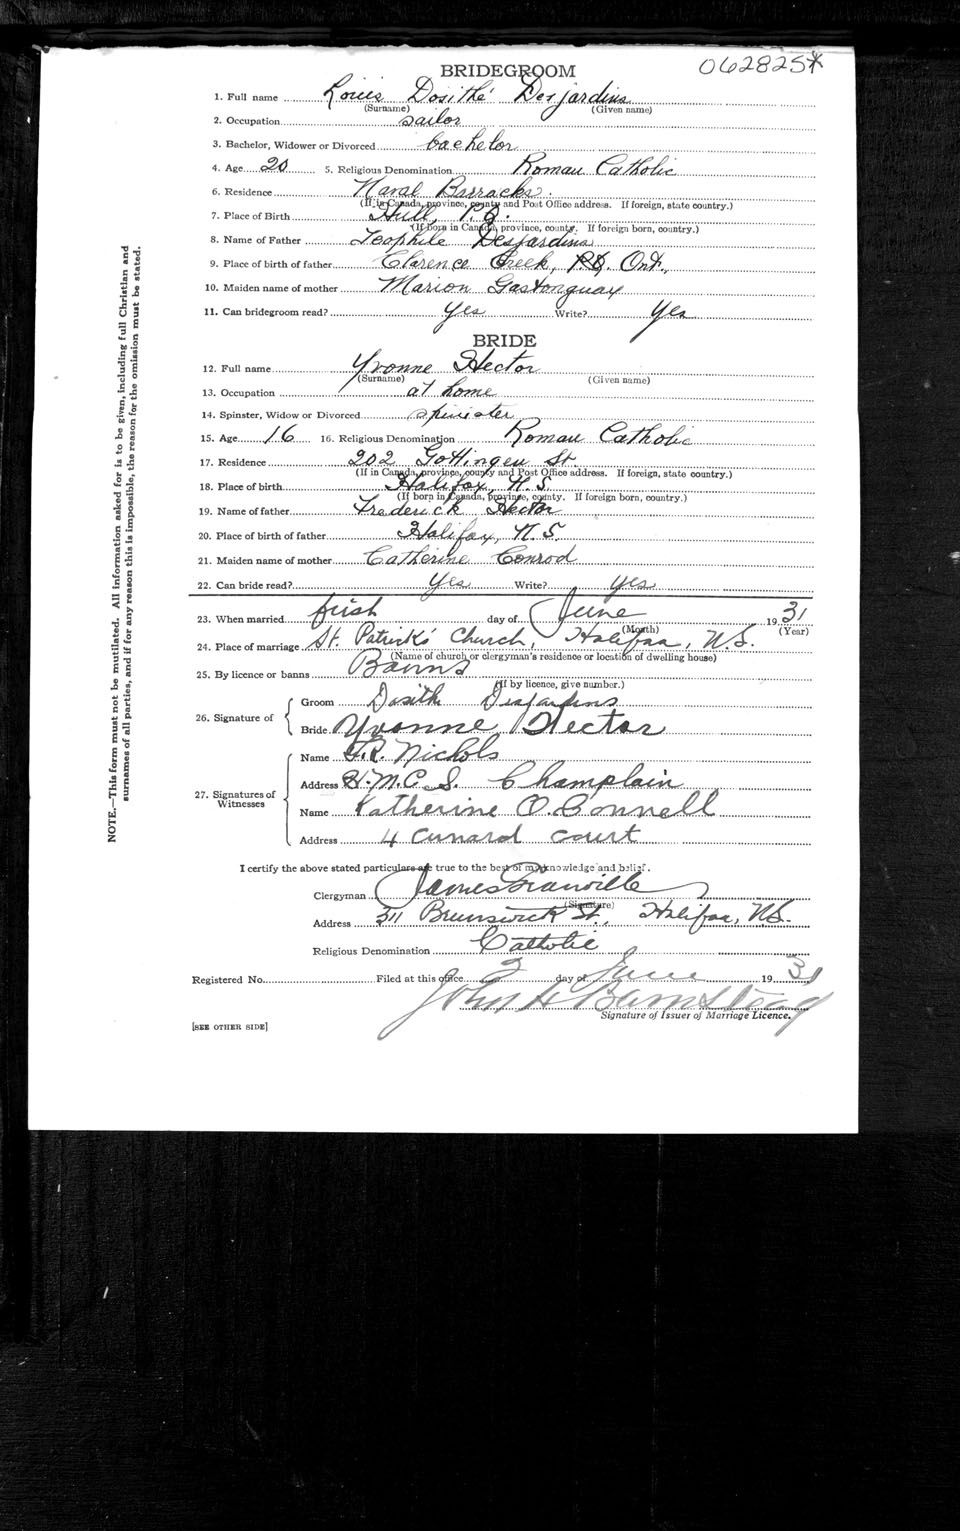 BRIDEGROOM 062825*
1. Full name Louis Dosithé Desjardins
(Surname) (Given name)
2. Occupation sailor
3. Bachelor, Widower or Divorced bachelor
4. Age 20 5. Religious Denomination Roman Catholic
6. Residence Naval Barracks.
(If in Canada, province, county and Post Office address. If foreign, state country.)
7. Place of Birth Hull, P.Q.
(If born in Canada, province, county. If foreign born, country.)
8. Name of Father Teophile Desjardins
9. Place of birth of father Clarence Creek, Ont.
10. Maiden name of mother Marion Gastonguay
11. Can bridegroom read? Yes Write? Yes
BRIDE
12. Full name Yvonne Hector
(Surname) (Given name)
13. Occupation at home
14. Spinster, Widow or Divorced spinster
15. Age 16 16. Religious Denomination Roman Catholic
17. Residence 202 Gottingen St
(If in Canada, province, county and Post Office address. If foreign, state country.)
18. Place of birth Halifax, N.S.
(If born in Canada, province, county. If foreign born, country.)
19. Name of father Frederick Hector
20. Place of birth of father Halifax, N.S.
21. Maiden name of mother Catherine Conrod
22. Can bride read? Yes Write? yes
23. When married first day of June 1931
(Month) (Year)
24. Place of marriage St. Patrick's Church, Halifax, N.S.
(Name of church or clergyman's residence or location of dwelling house)
25. By licence or banns Banns
(If by licence, give number.)
26. Signature of Groom Dosith Desjardins
Bride Yvonne Hector
27. Signatures of Witnesses
Name G.R. Nichols
Address H.M.C.S. Champlain
Name Katherine O.Connell
Address 4 Cunard Court
I certify the above stated particulars are true to the best of my knowledge and belief.
Clergyman James Granville
(Signature)
Address 311 Brunswick St., Halifax, N.S.
Religious Denomination Catholic
Registered No. Filed at this office 2 day of June 1931
John H Barnstead
Signature of Issuer of Marriage Licence.
[SEE OTHER SIDE]
NOTE.—This form must not be mutilated. All information asked for is to be given, including full Christian and
surnames of all parties, and if for any reason this is impossible, the reason for the omission must be stated.